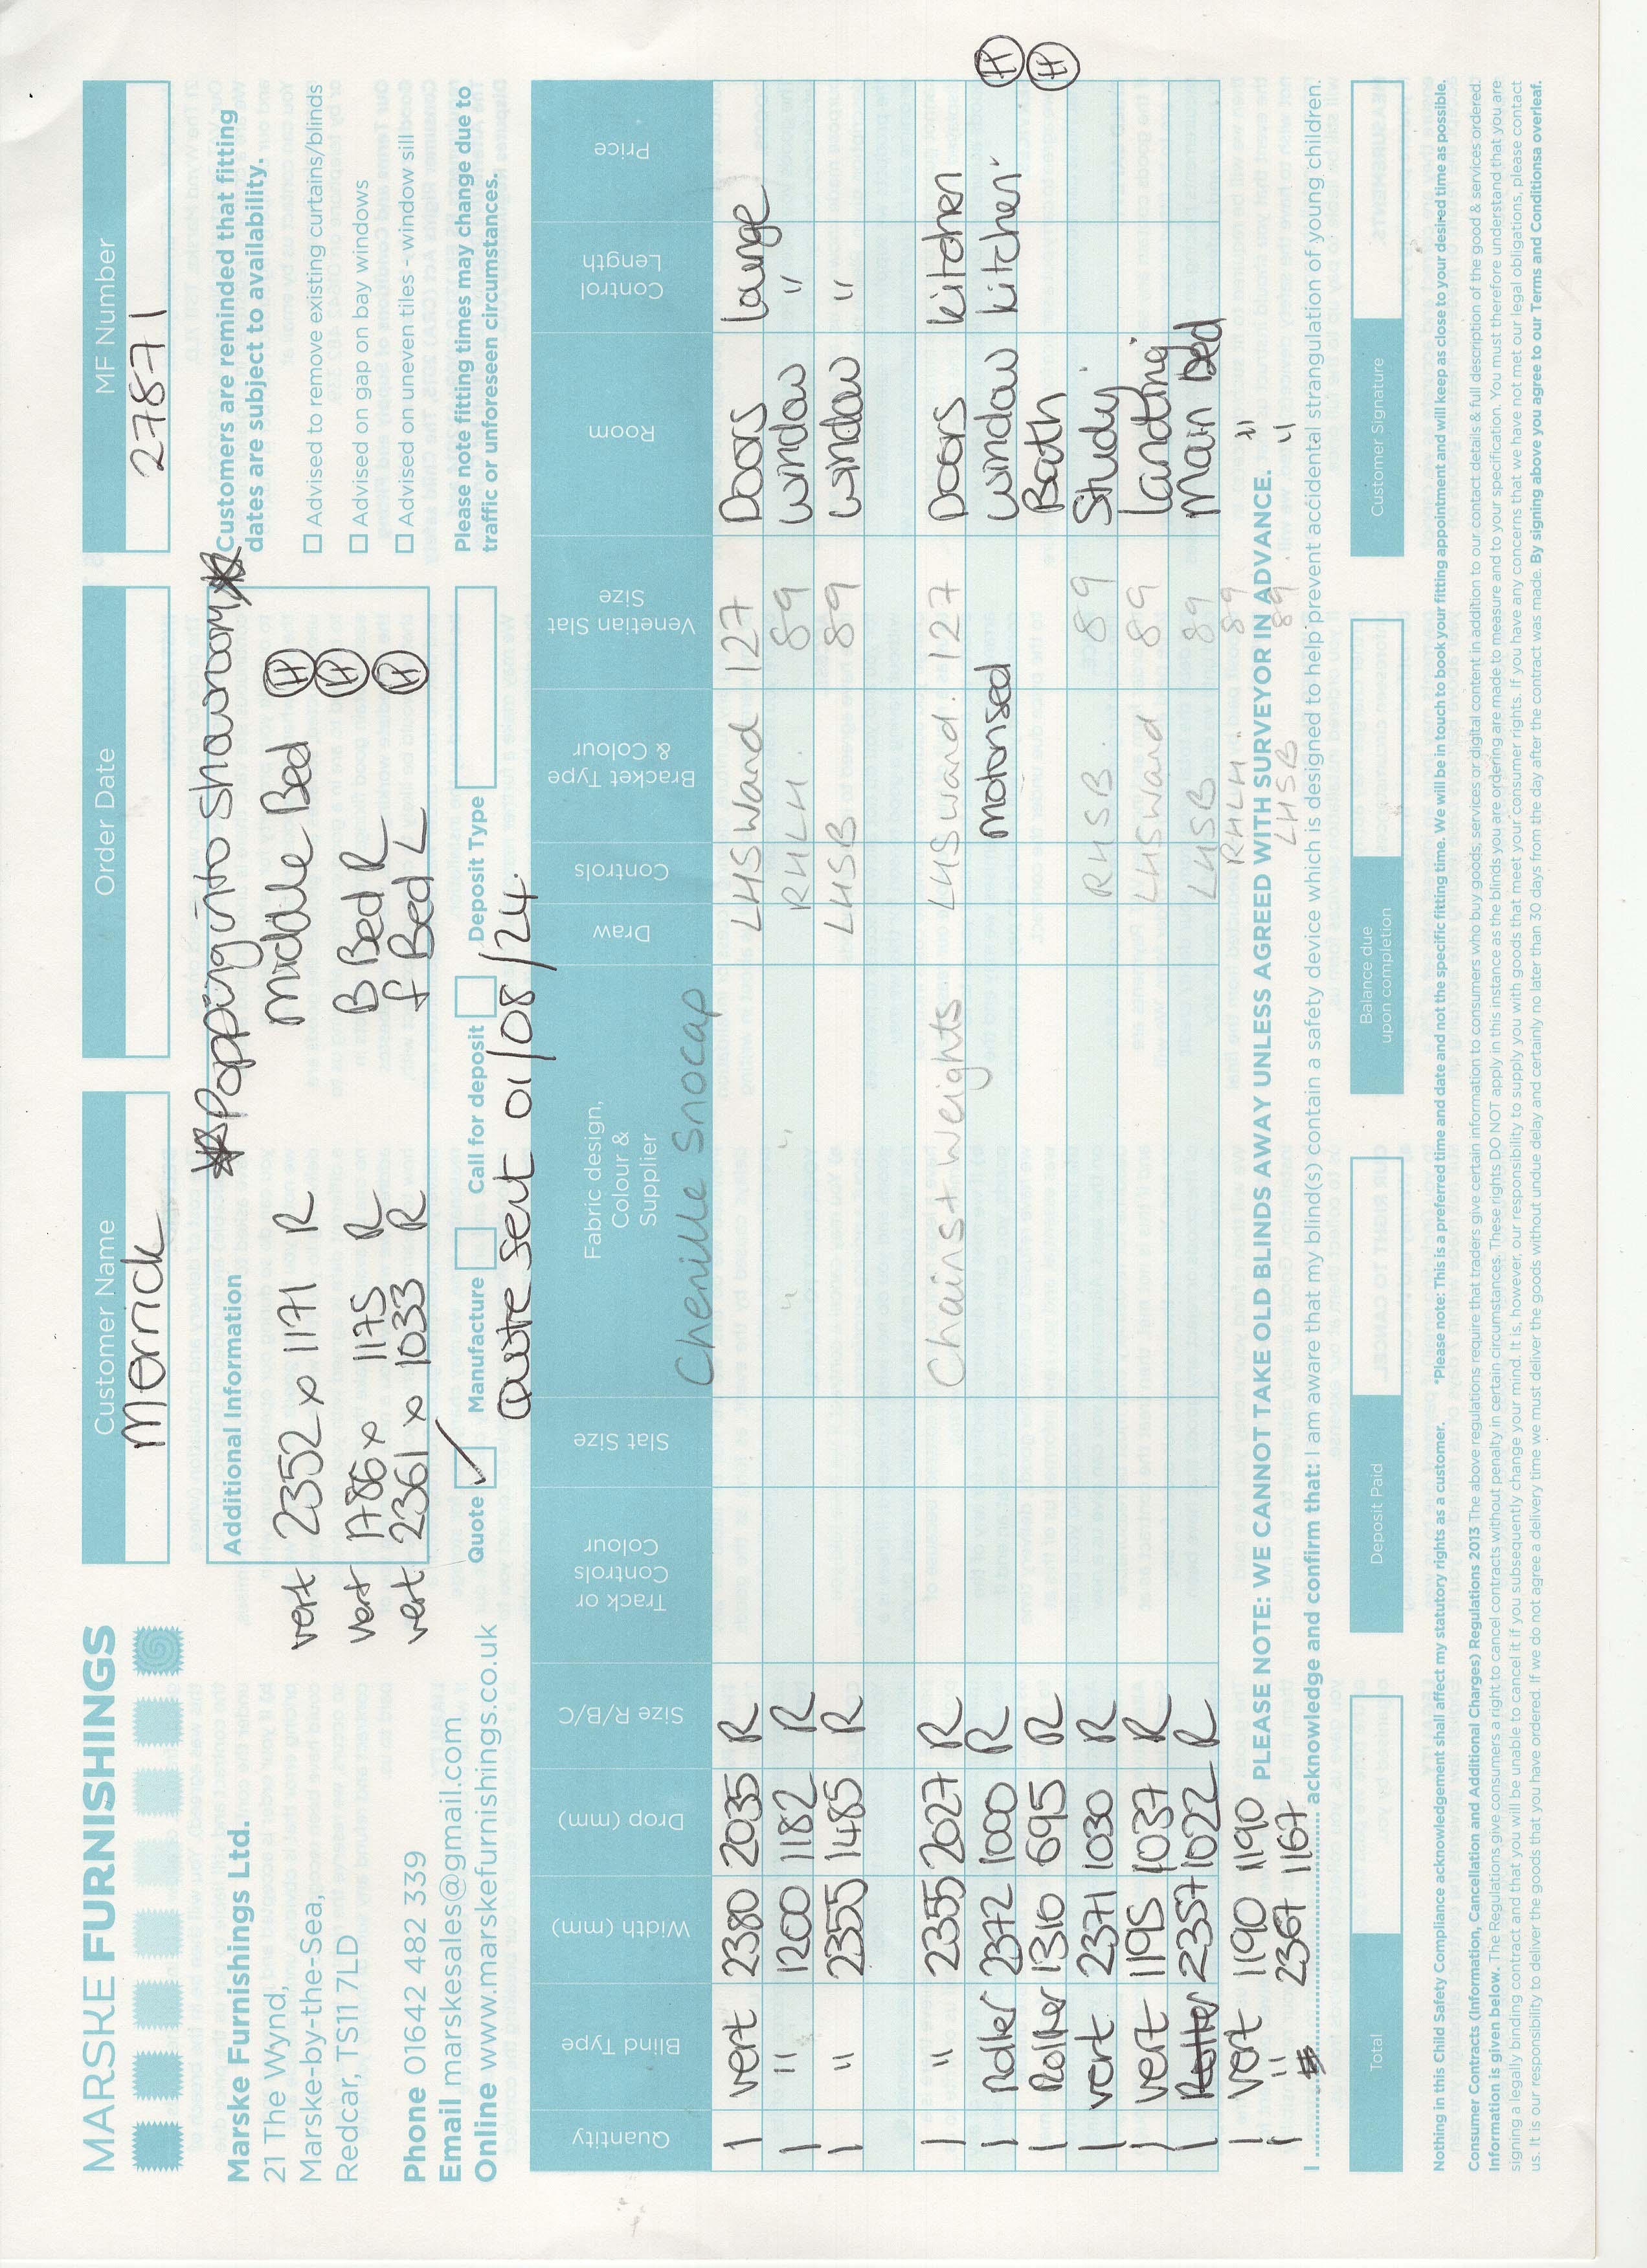 MARSKE FURNISHINGS
Marske Furnishings Ltd.
21 The Wynd,
Marske-by-the-Sea,
Redcar, TS11 7LD
Phone 01642 482 339
Email marskesales@gmail.com
Online www.marskefurnishings.co.uk
Customer Name
Merrick
Order Date
MF Number
27871
Additional Information
*Popping into Showroom*
vert 2352 x 1171 R Middle Bed H
vert 1786 x 1175 R B Bed R H
vert 2361 x 1033 R F Bed L H
Customers are reminded that fitting
dates are subject to availability.
Advised to remove existing curtains/blinds
Advised on gap on bay windows
Advised on uneven tiles - window sill
Please note fitting times may change due to
traffic or unforeseen circumstances.
Quote ✓ Manufacture Call for deposit Deposit Type
Quote sent 01/08/24.
Quantity Blind Type Width (mm) Drop (mm) Size R/B/C Track or Controls Colour Slat Size Fabric design, Colour & Supplier Draw Controls Bracket Type & Colour Venetian Slat Size Room Control Length Price
Chenille Snocap
1 vert 2380 2035 R LHS Wand 127 Doors lounge
1 " 1200 1182 R " " RHLH. 89 window "
1 " 2355 1485 R LHSB 89 window "
1 " 2355 2027 R Chainst Weights LHS wand. 127 Doors kitchen
1 Roller 2372 1000 R Motorised window kitchen H
1 Roller 1310 695 R Bath H
1 vert 2371 1030 R RHSB. 89 Study
1 vert 1195 1037 R LHS Wand 89 Landing
1 Roller 2357 1022 R LHSB 89 Main Bed
1 vert 1190 1190 RHLH. 89 "
1 " 2367 1167 LHSB 89. "
PLEASE NOTE: WE CANNOT TAKE OLD BLINDS AWAY UNLESS AGREED WITH SURVEYOR IN ADVANCE.
I acknowledge and confirm that: I am aware that my blind(s) contain a safety device which is designed to help prevent accidental strangulation of young children.
Total
Deposit Paid
Balance due
upon completion
Customer Signature
Nothing in this Child Safety Compliance acknowledgement shall affect my statutory rights as a customer. *Please note: This is a preferred time and date and not the specific fitting time. We will be in touch to book your fitting appointment and will keep as close to your desired time as possible.
Consumer Contracts (Information, Cancellation and Additional Charges) Regulations 2013 The above regulations require that traders give certain information to consumers who buy goods, services or digital content in addition to our contact details & full description of the good & services ordered.
Information is given below. The Regulations give consumers a right to cancel contracts without penalty in certain circumstances. These rights DO NOT apply in this instance as the blinds you are ordering are made to measure and to your specification. You must therefore understand that you are
signing a legally binding contract and that you will be unable to cancel it if you subsequently change your mind. It is, however, our responsibility to supply you with goods that meet your consumer rights. If you have any concerns that we have not met our legal obligations, please contact
us. It is our responsibility to deliver the goods that you have ordered. If we do not agree a delivery time we must deliver the goods without undue delay and certainly no later than 30 days from the day after the contract was made. By signing above you agree to our Terms and Conditionsa overleaf.